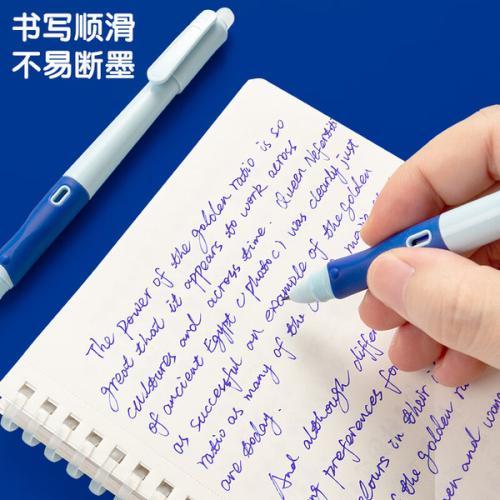 书写顺滑
不易断墨
The power of the golden ratio is so
great that it appears to work across
cultures and across time. Queen Nefertiti
of ancient Egypt (photo c) was clearly just
as successful an example of the golden
ratio as many of the
are today.
And although differ
preferences for
colours in their
the golden ra
and wom